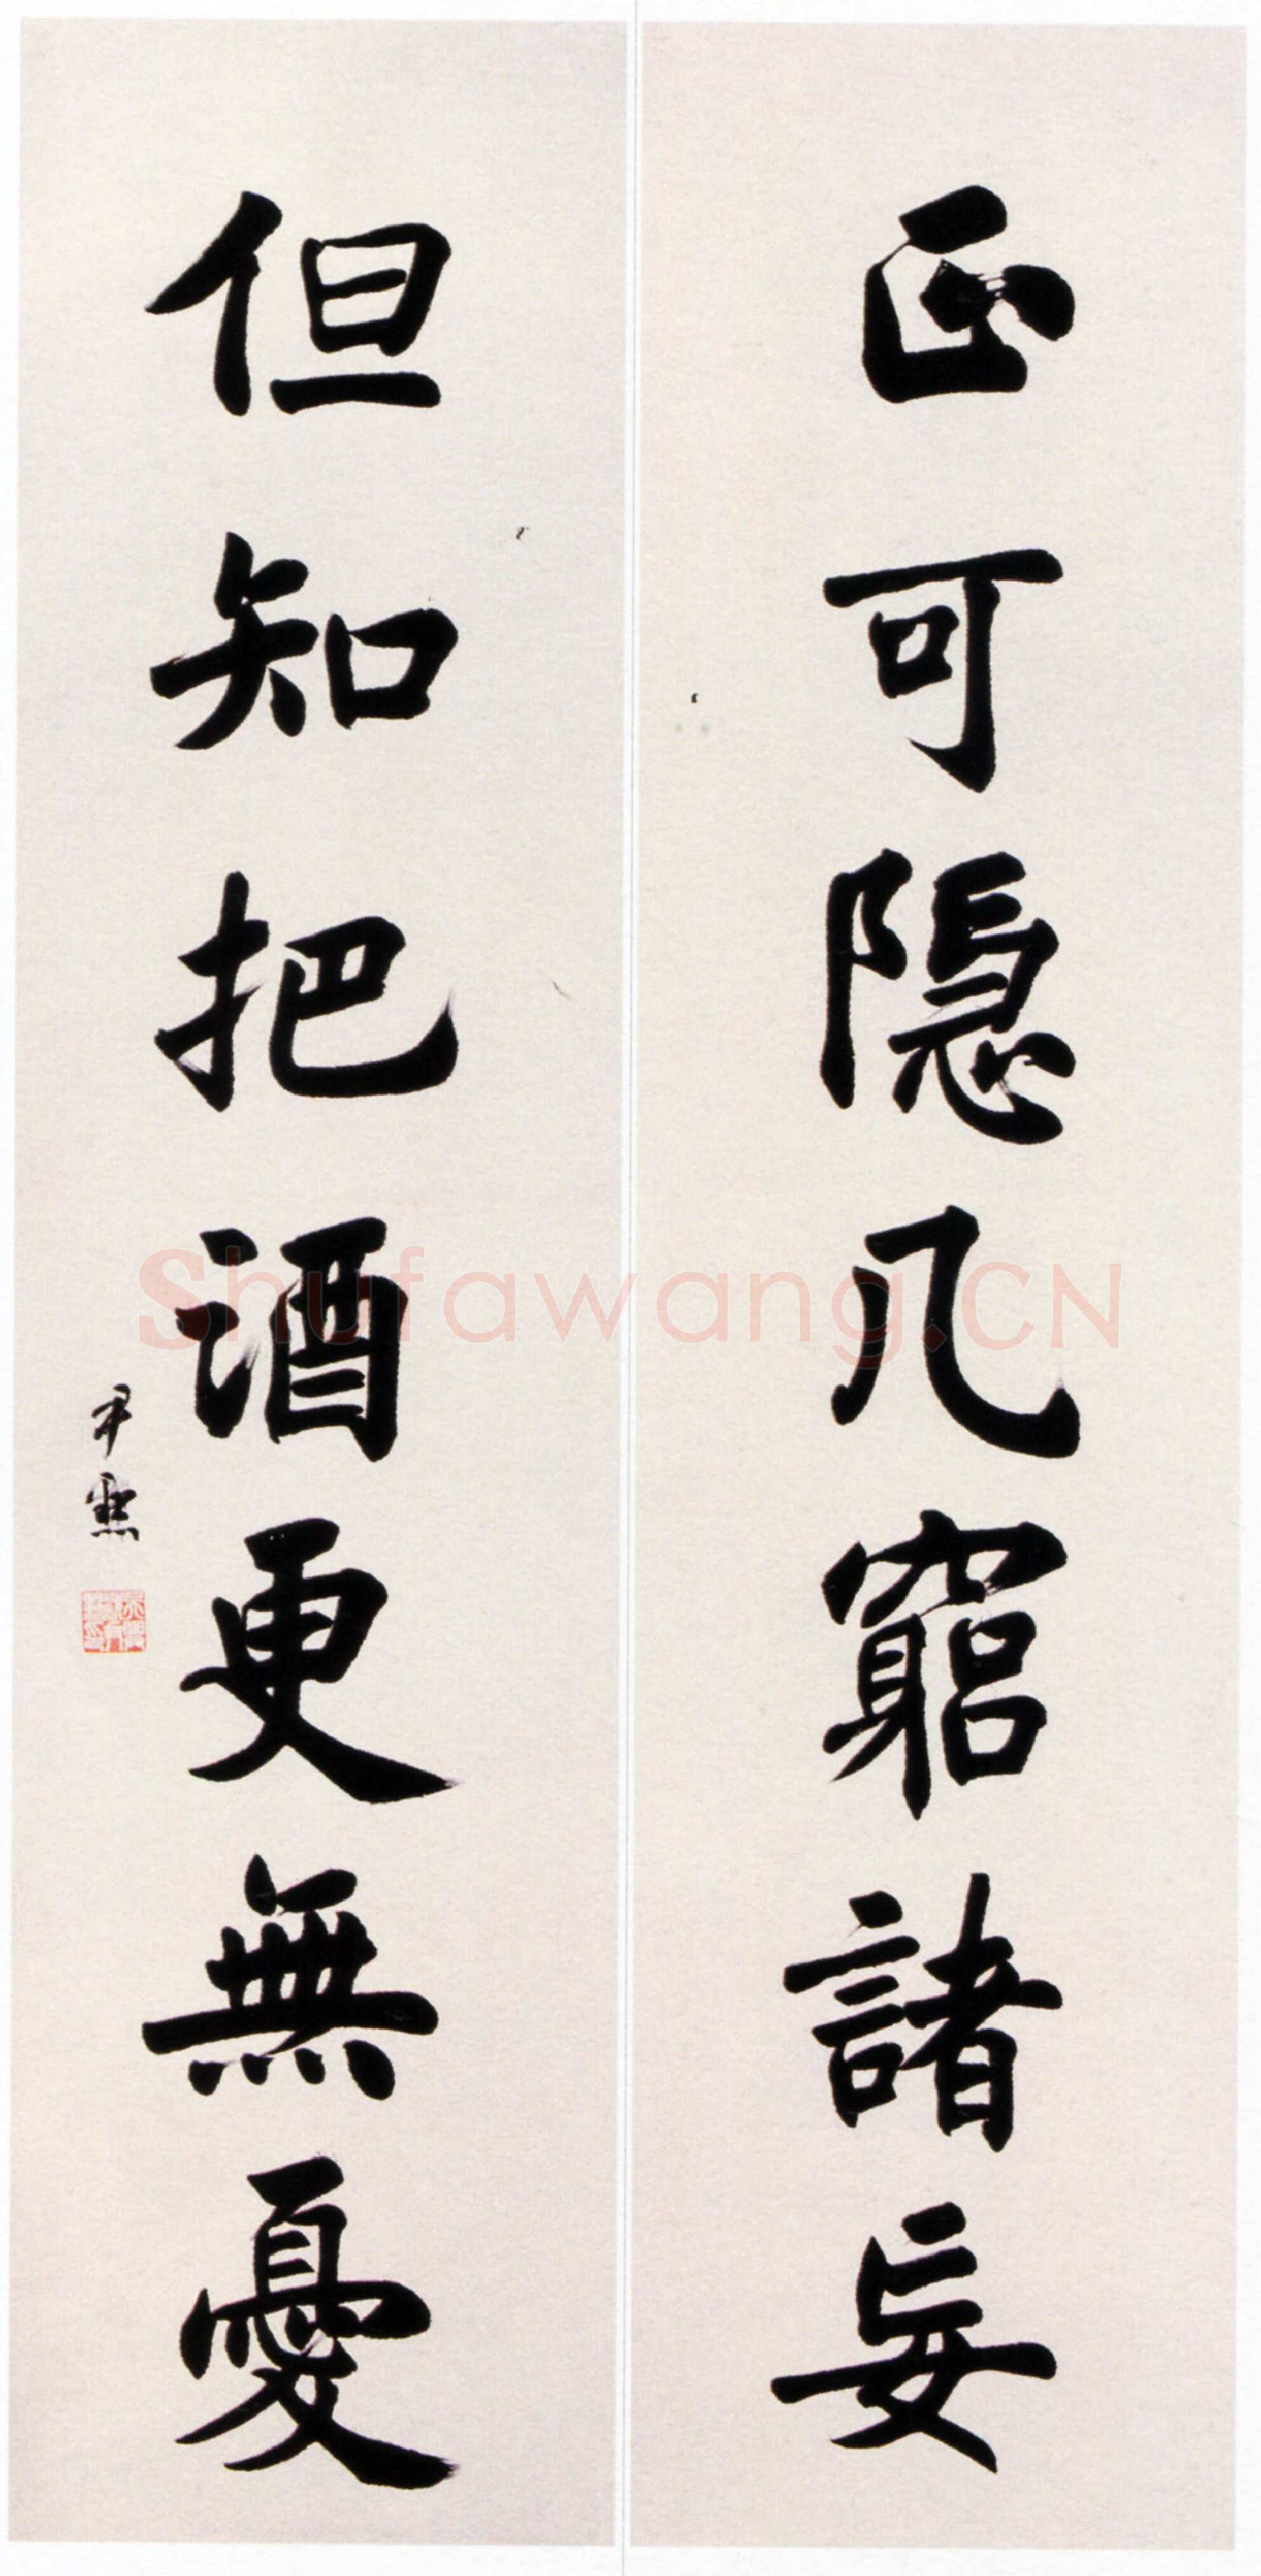 正可隱几窮諸妄
但知把酒更無憂
尹默
Shufawang.CN